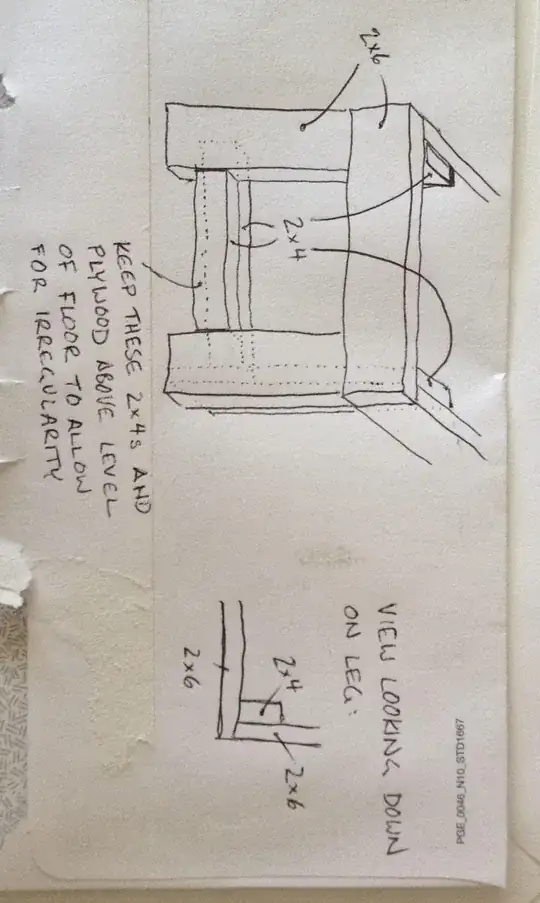 2x6
2x4
KEEP THESE 2x4s AND
PLYWOOD ABOVE LEVEL
OF FLOOR TO ALLOW
FOR IRREGULARITY
VIEW LOOKING DOWN
ON LEG:
2x4
2x6
2x6
PGB_0046_N10_STD1667